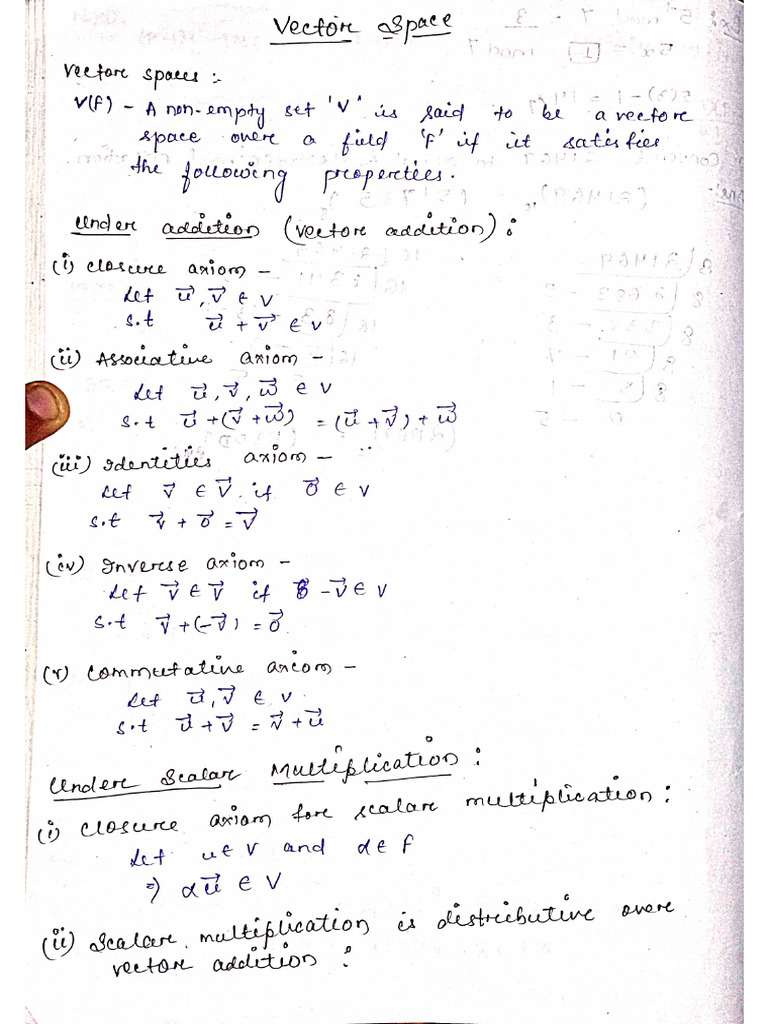 Vector Space
Vectore spaces :-
V(F) - A non-empty set 'V' is said to be a vectore
space overe a field 'F' if it satisfies
the following propertiees.
Undere addition (vectore addition) :
(i) closure axiom -
Let u⃗, v⃗ ∈ V
s.t u⃗ + v⃗ ∈ V
(ii) Associative axiom -
Let u⃗, v⃗, w⃗ ∈ V
s.t u⃗ + (v⃗ + w⃗) = (u⃗ + v⃗) + w⃗
(iii) Identities axiom -
Let v⃗ ∈ V⃗ if 0⃗ ∈ V
s.t v⃗ + 0⃗ = v⃗
(iv) Inverse axiom -
Let v⃗ ∈ V⃗ if -v⃗ ∈ V
s.t v⃗ + (-v⃗) = 0⃗
(v) Commutative axiom -
Let u⃗, v⃗ ∈ V
s.t u⃗ + v⃗ = v⃗ + u⃗
Undere Scalar Multiplication :
(i) closure axiom fore scalare multiplication :
Let u ∈ V and α ∈ F
⇒ αu⃗ ∈ V
(ii) Scalare multiplication is distributive overe
vectore addition :